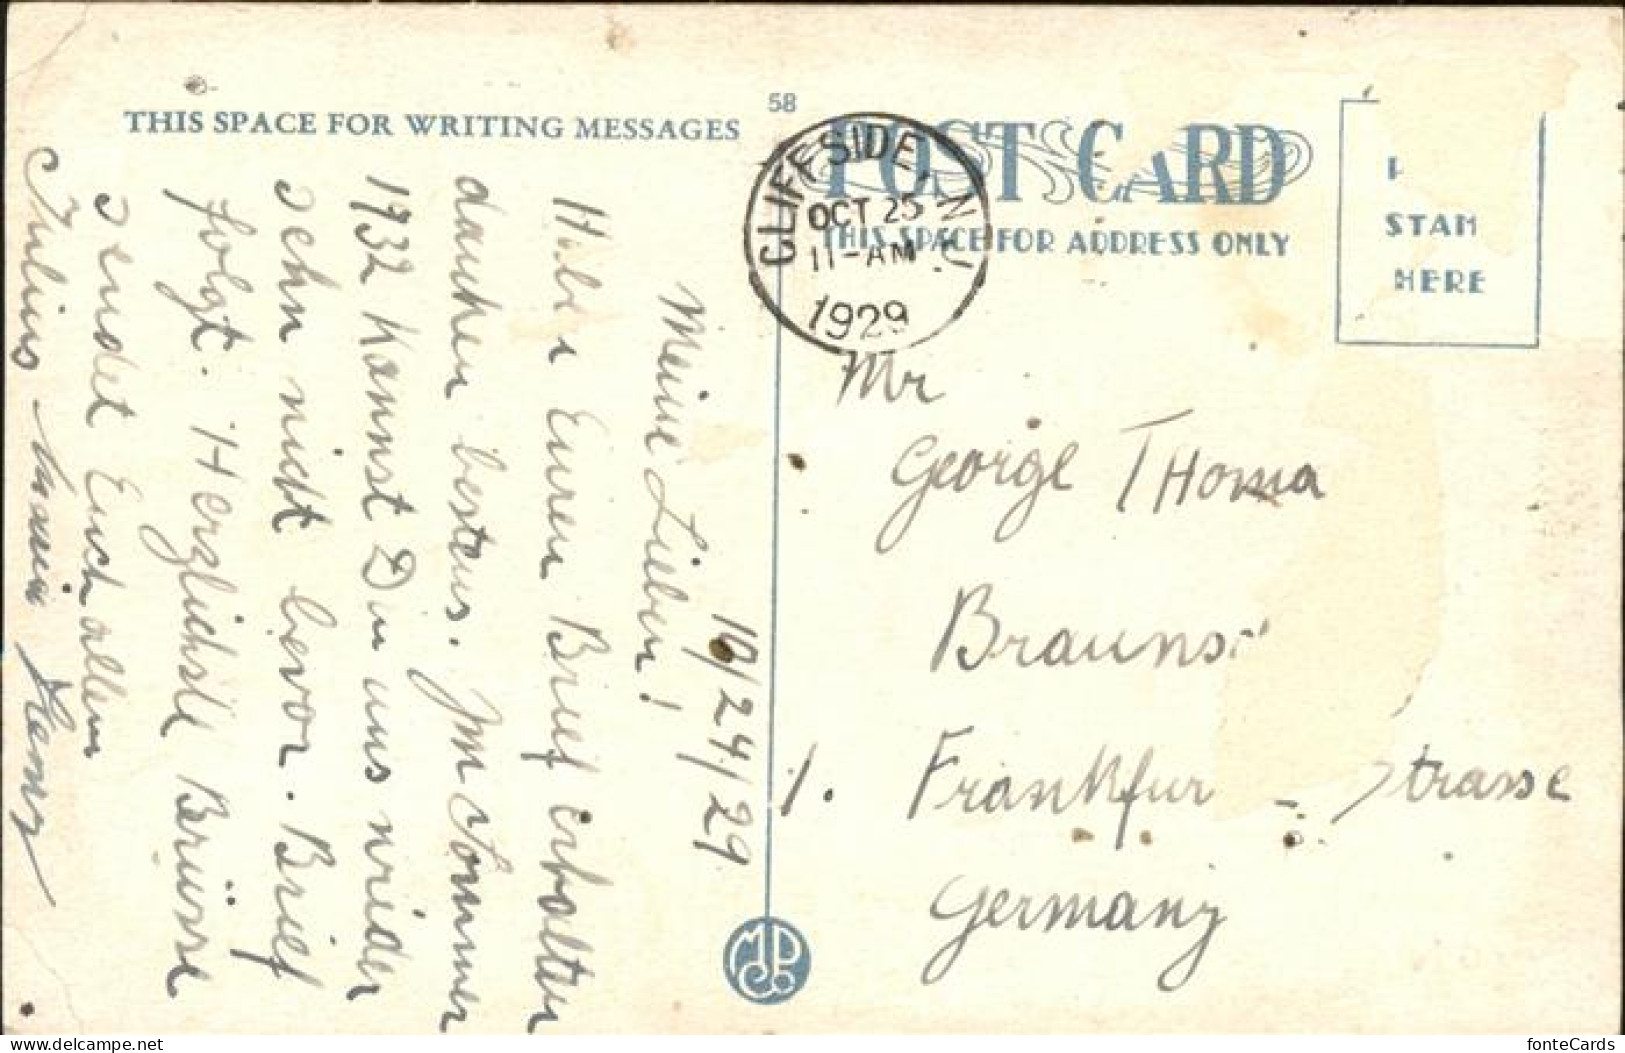 THIS SPACE FOR WRITING MESSAGES
58
POST CARD
THIS SPACE FOR ADDRESS ONLY
CLIFFSIDE, N.J.
OCT 25
11-AM
1929
STAM
HERE
10/24/29
Meine Lieben!
Habe Euren Brief erhalten
danken bestens. Im Sommer
1932 kannst Du uns wieder
sehn nicht bevor. Brief
folgt. Herzlichste Brüsse
sendet Euch allem
Julius
Mr
George THoma
Brauns
1. Frankfur - strasse
Germany
delcampe.net
fonteCards